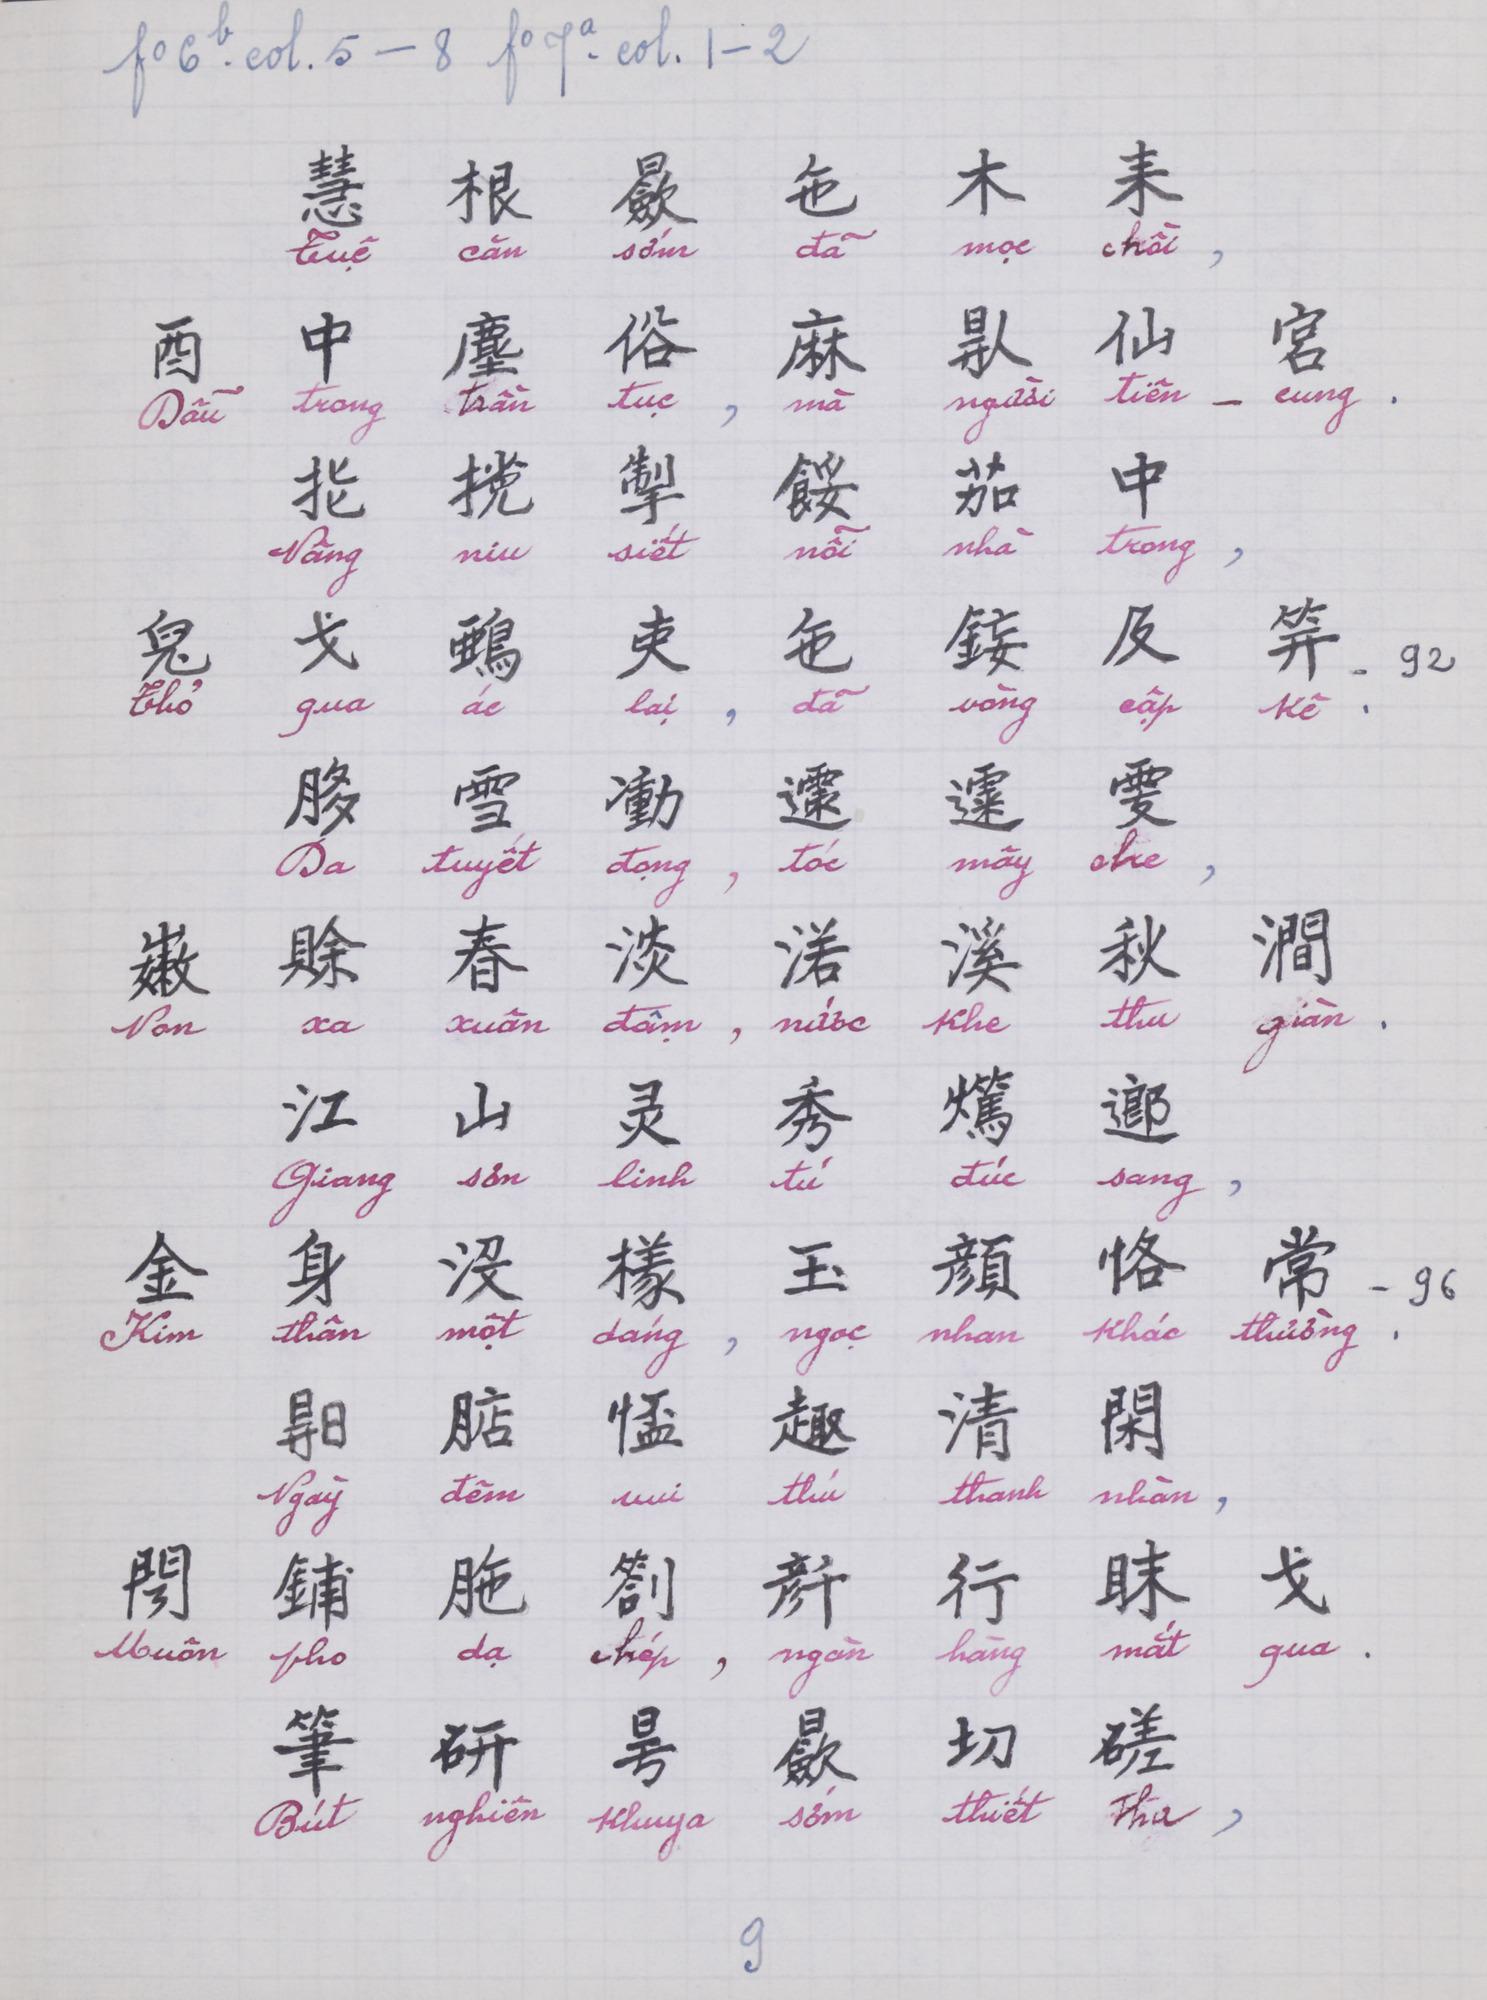 fº 6ᵇ. col. 5 – 8 fº 7ª. col. 1 – 2
慧 根 㪰 㐌 木 耒
Tuệ căn sớm đã mọc chồi,
酉 中 塵 俗 麻 𠊛 仙 宮
Dẫu trong trần tục, mà người tiên – cung.
𢪥 挽 掣 餒 茄 中
Nâng niu siết nỗi nhà trong,
兔 戈 鵶 吏 㐌 𨦩 及 笄 - 92
Thỏ gua ác lại, đã vòng cập kê.
𦢞 雪 𠖈 𨱾 𩄲 雯
Da tuyết đọng, tóc mây che,
嫩 賒 春 淡 渃 溪 秋 澗
Non xa xuân đậm, nước khe thu giàn.
江 山 灵 秀 𤒘 𨖅
Giang sơn linh tú đúc sang,
金 身 没 樣 玉 顔 恪 常 - 96
Kim thân một dáng, ngọc nhan khác thường.
𣈜 𣎀 𢝙 趣 清 閑
Ngày đêm vui thú thanh nhàn,
𨷈 鋪 胣 劄 𠦳 行 眜 戈
Muôn pho dạ chép, ngàn hàng mắt qua.
筆 研 𣌉 㪰 切 磋
Bút nghiên khuya sớm thiết tha,
9